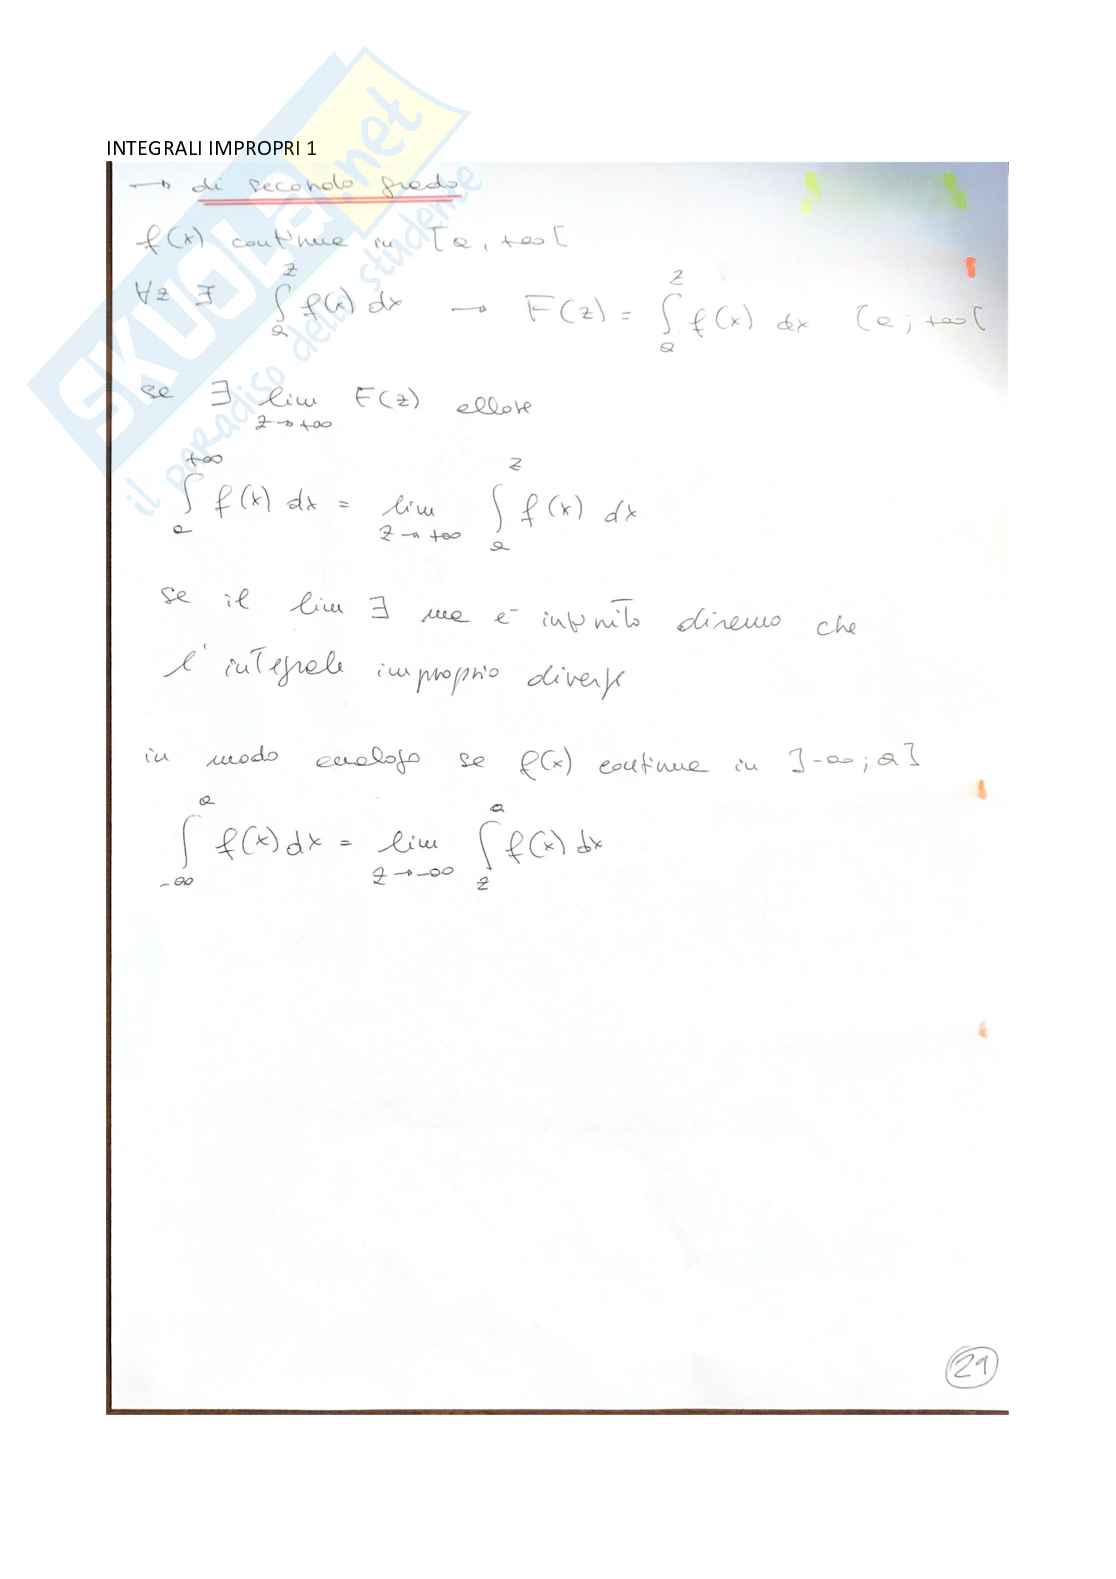 SKUOLA.net
il paradiso dello studente
INTEGRALI IMPROPRI 1
→ di secondo grado
f(x) continua in [a, +∞[
∀z ∃ ∫_a^z f(x) dx → F(z) = ∫_a^z f(x) dx [a; +∞[
se ∃ lim_{z→+∞} F(z) allora
∫_a^{+∞} f(x) dx = lim_{z→+∞} ∫_a^z f(x) dx
se il lim ∃ ma è infinito diremo che
l'integrale improprio diverge
in modo analogo se f(x) continua in ]-∞; a]
∫_{-∞}^a f(x) dx = lim_{z→-∞} ∫_z^a f(x) dx
21